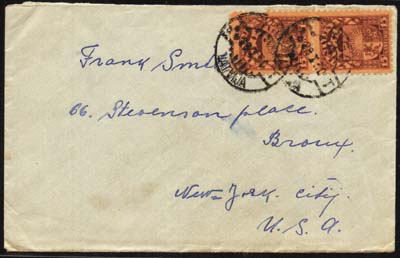 Frank Smit
66. Stevenson place.
Bronx.
New York. City.
U. S. A.
15 15